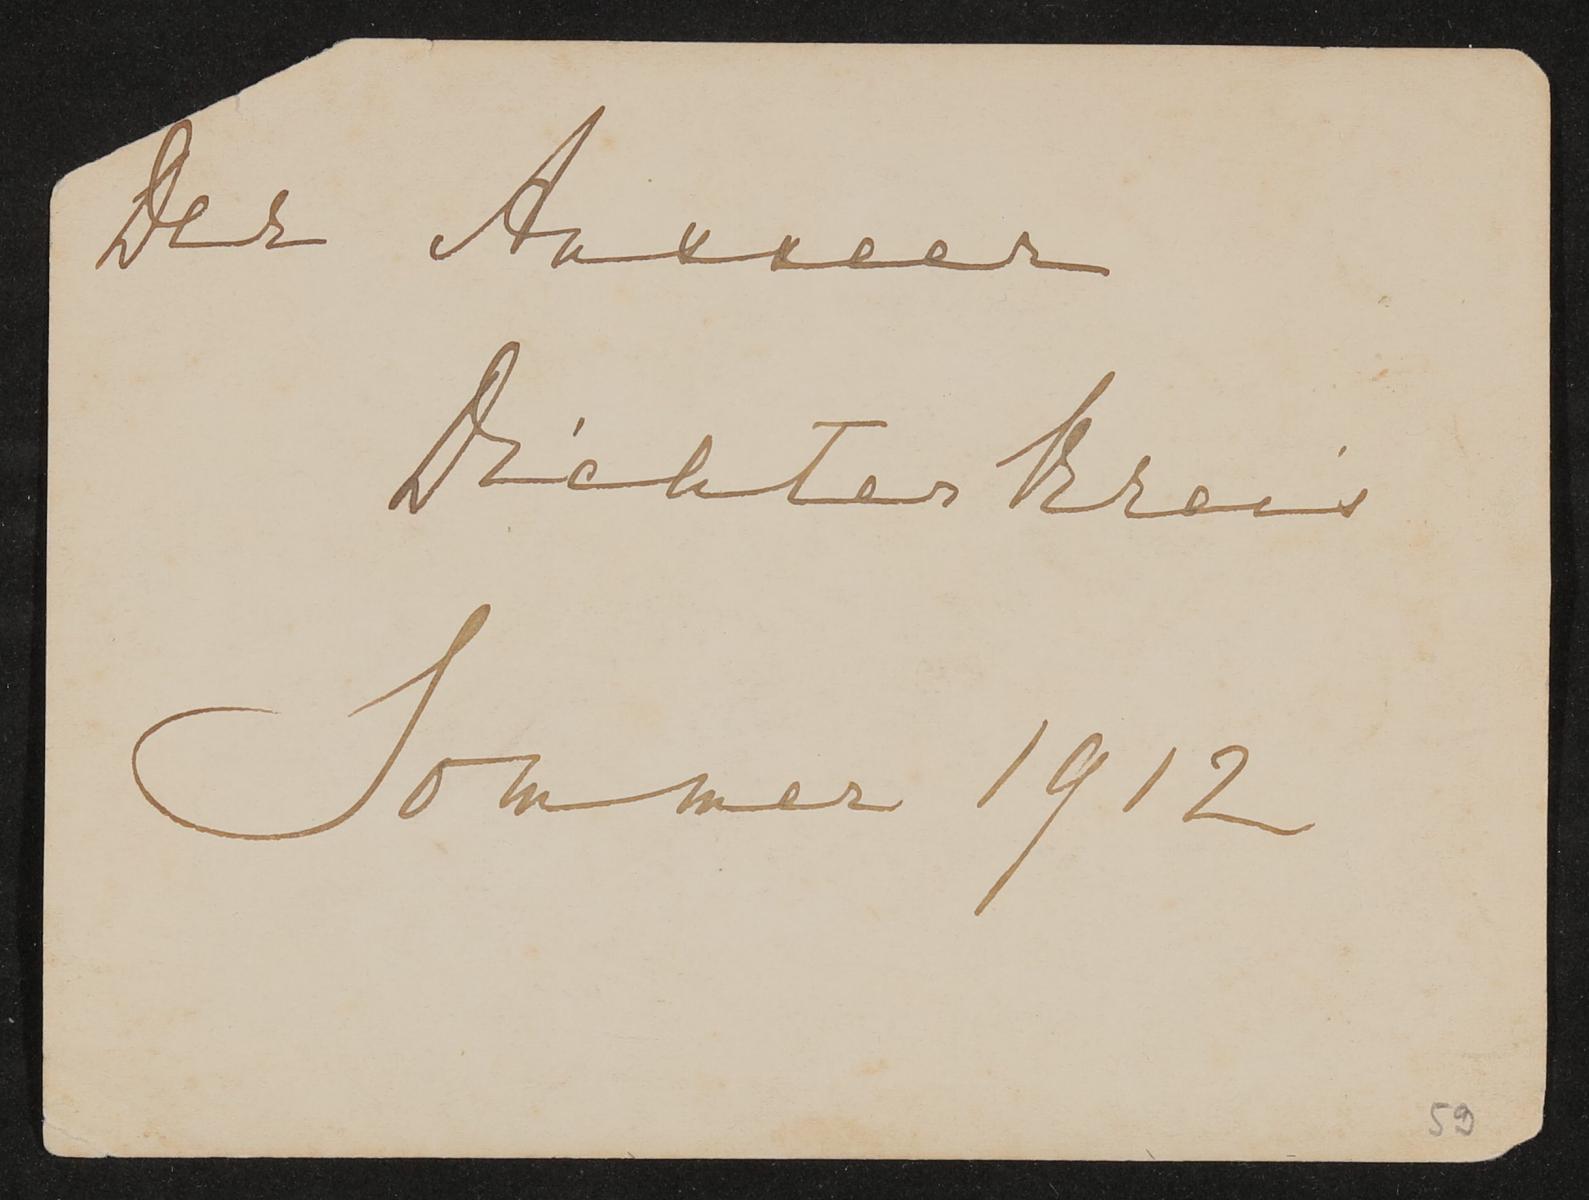 Der Ausseer
Dichterkreis
Sommer 1912
59